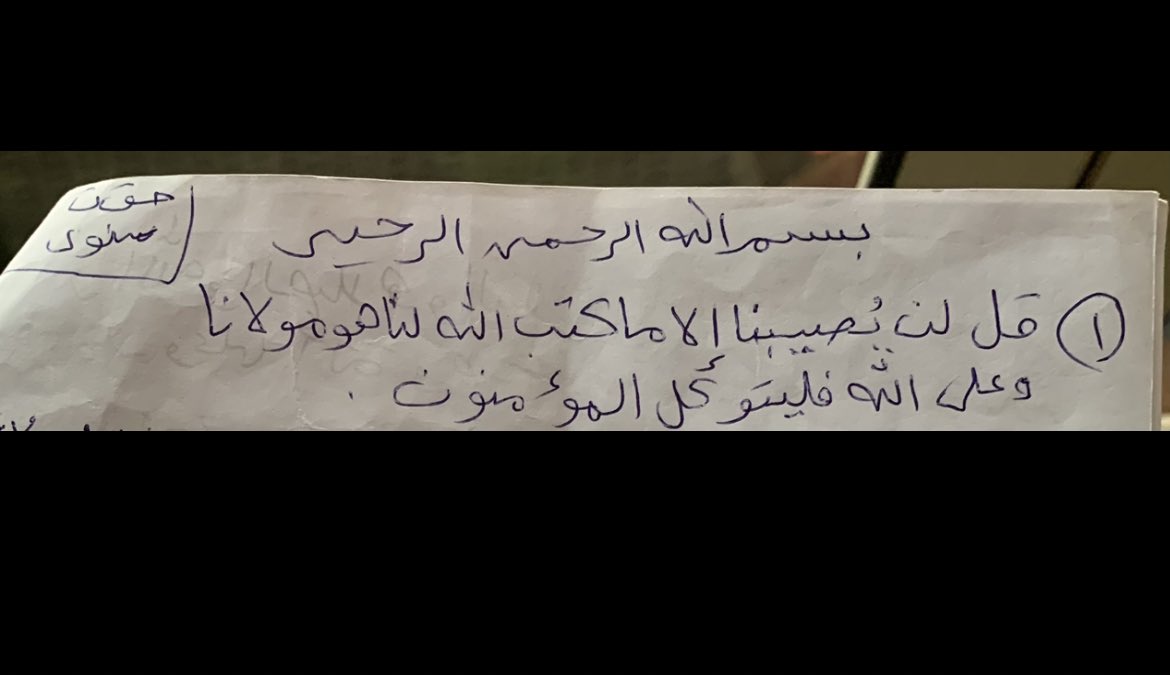 بسم الله الرحمن الرحيم
① قل لن يُصيبنا إلا ما كتب الله لنا هو مولانا
وعلى الله فليتوكل المؤمنون .